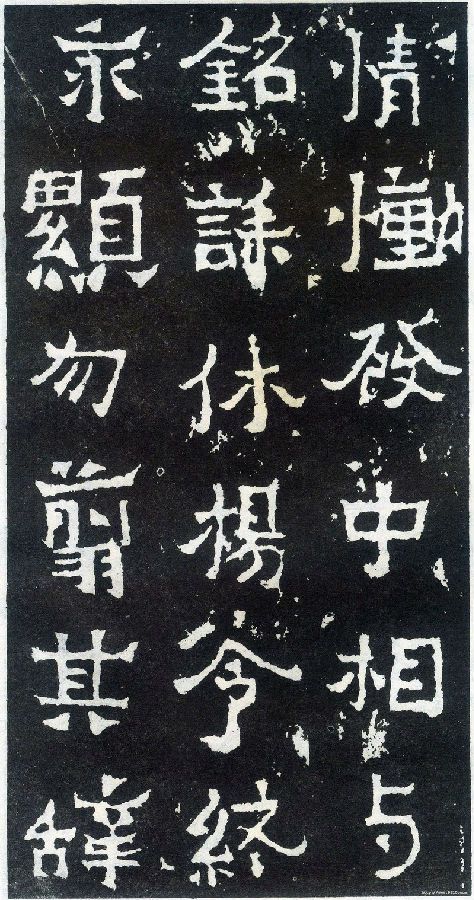 情慟發中相与
銘誄休楊令終
永顯勿翦其辞